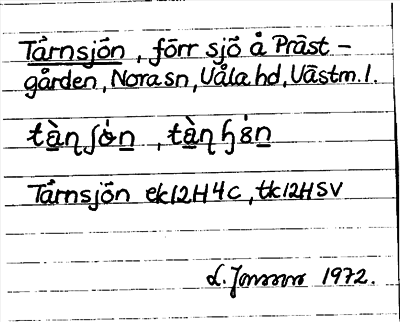 Tårnsjön, förr sjö å Präst-
gården, Nora sn, Våla hd, Västm. l.
Tårnsjön ek12H4c, tk12HSV
1972.